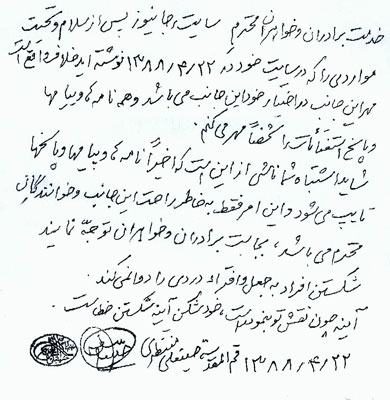 خدمت برادران و خواهران محترم سایت رجانیوز پس از سلام و تحیت
مواردی را که در سایت خود در ۱۳۸۸/۴/۲۲ نوشته اید خلاف واقع است
مهر این جانب در اختیار خود این جانب می باشد و همه نامه ها، و پیامها
و پاسخ استفتائات را شخصاً مهر می کنم.
شاید اشتباه شما ناشی از این است که اخیراً نامه ها، و پیامها و پاسخها
تایپ می شود و این امر فقط به خاطر راحت این جانب و خوانندگان
محترم می باشد، بجاست برادران و خواهران توجّه نمایند
شکستن افراد به جعل و افتراء دردی را دوا نمی کند.
آینه چون نقش تو بنمود راست، خود شکن آینه شکستن خطاست.
۱۳۸۸/۴/۲۲ قم المقدسة حسینعلی منتظری